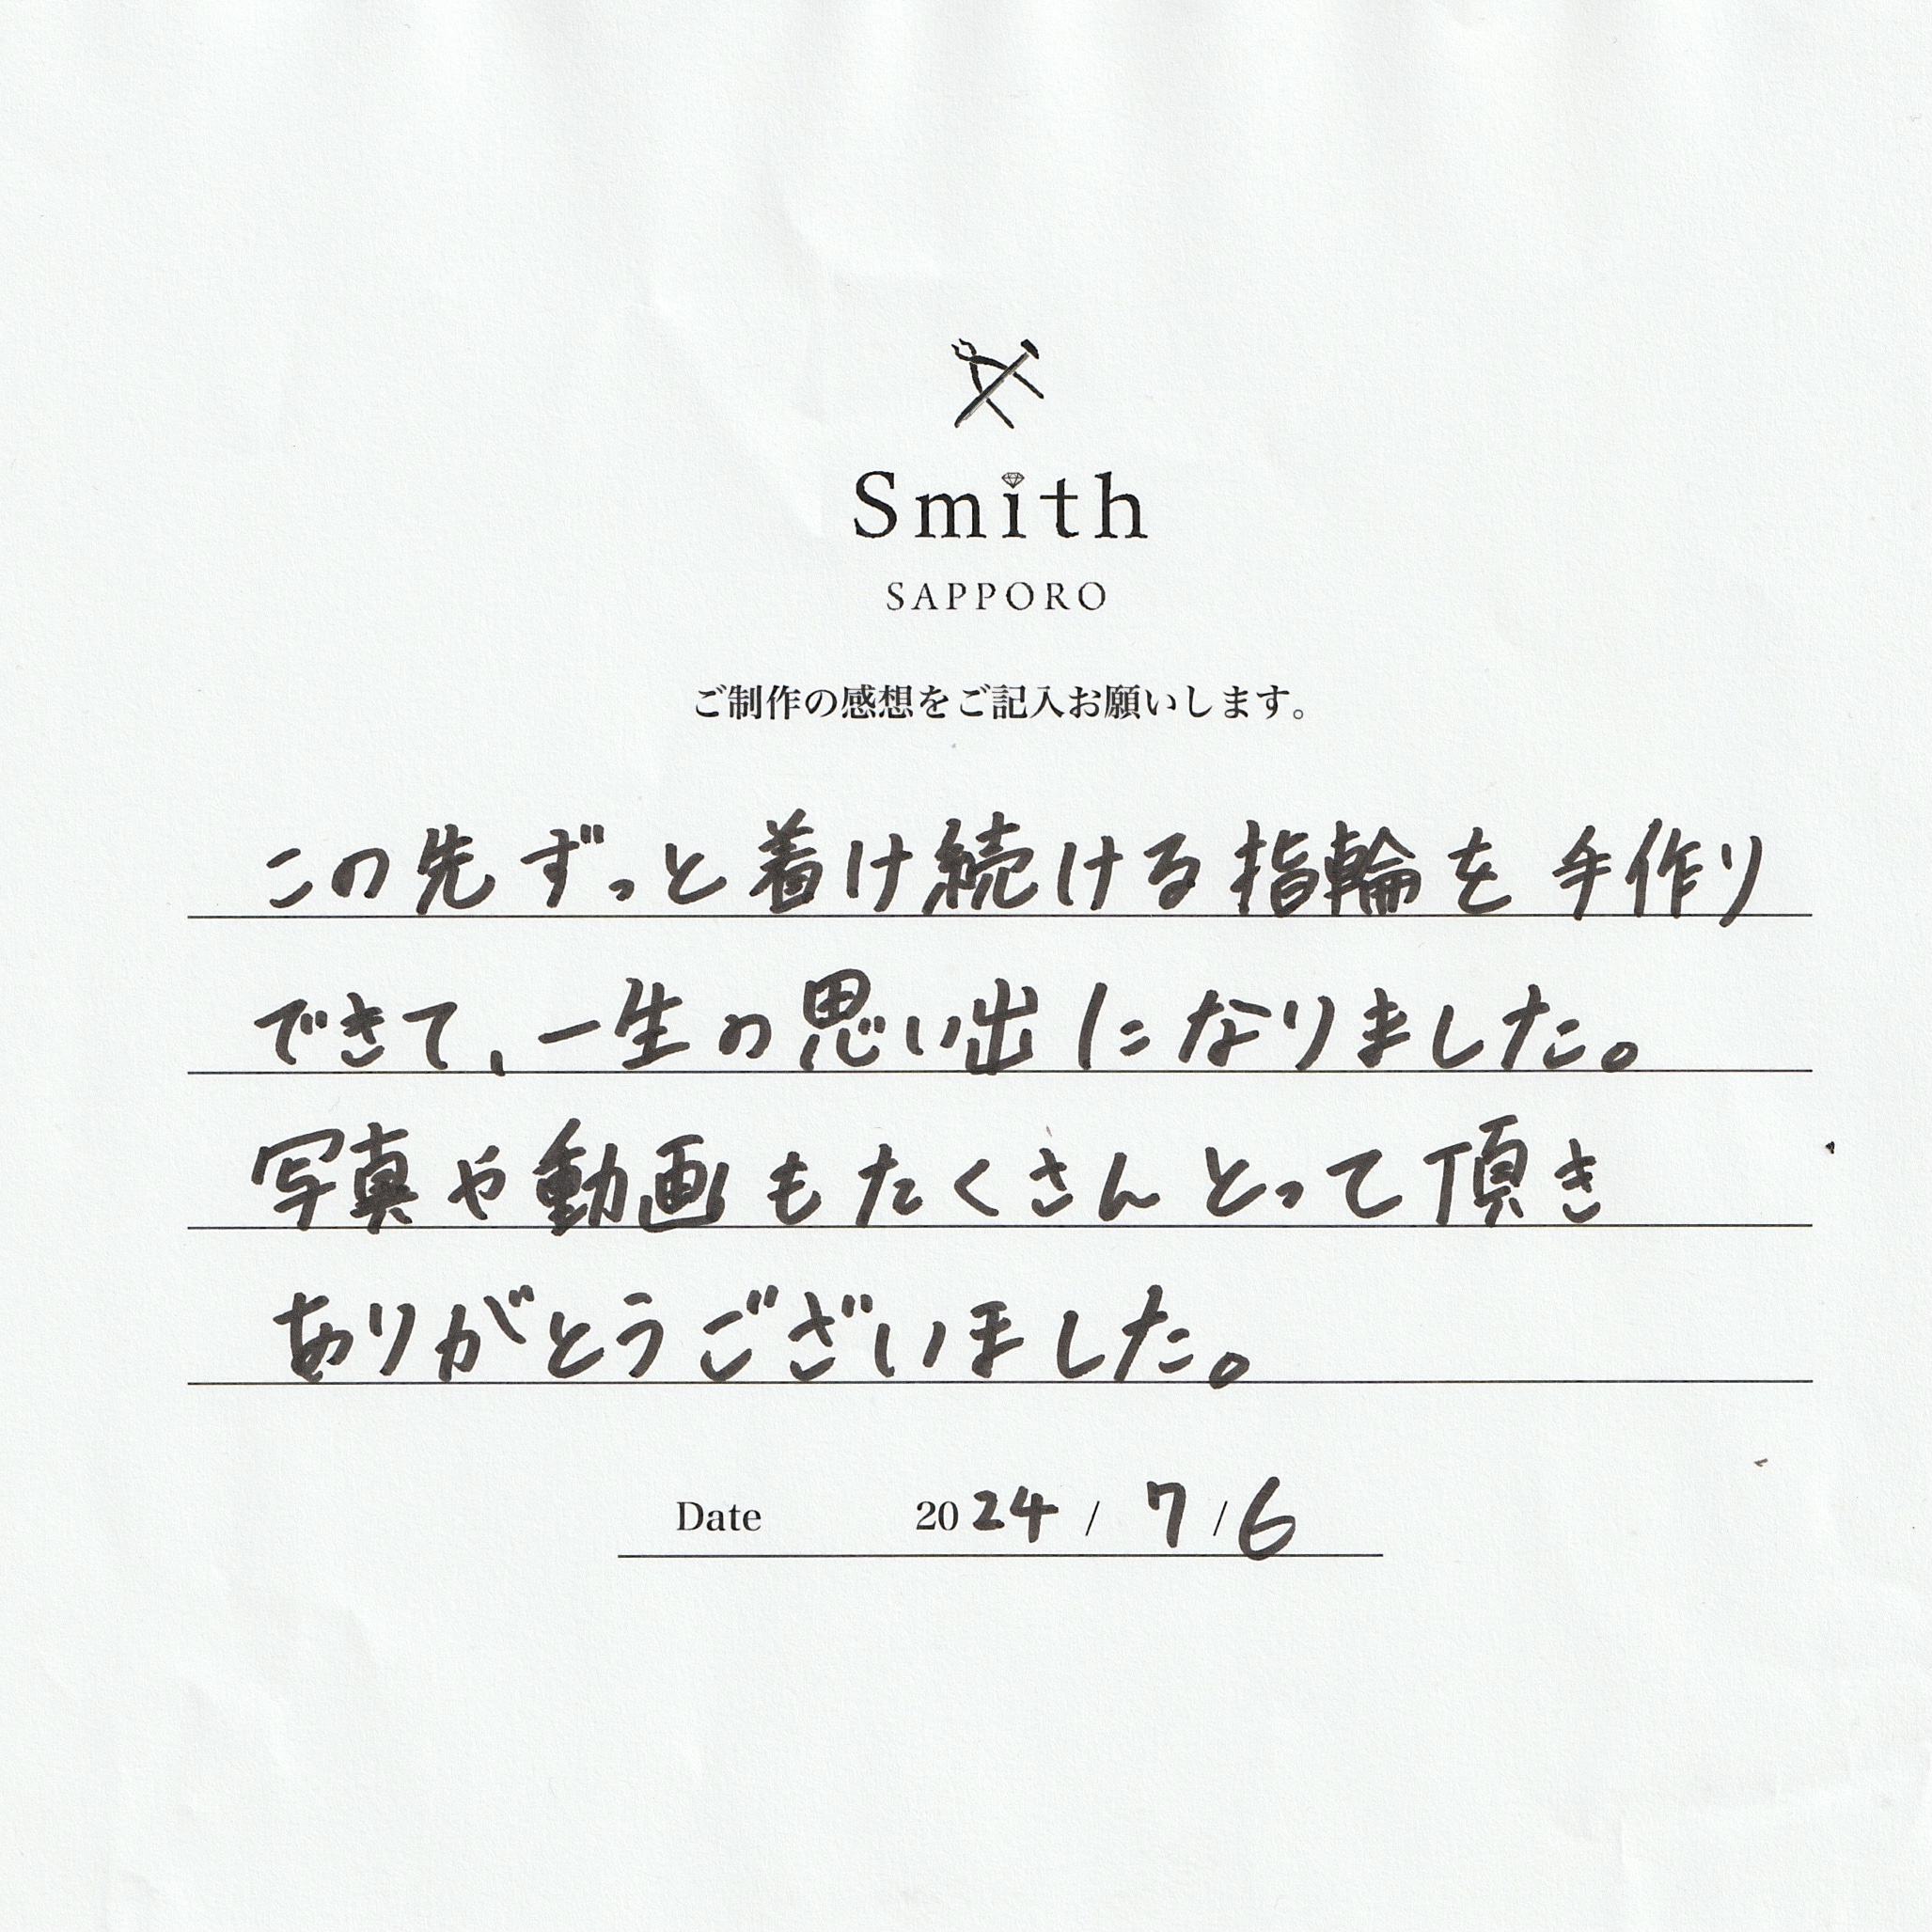 Smith
SAPPORO
ご制作の感想をご記入お願いします。
この先ずっと着け続ける指輪を手作り
できて、一生の思い出になりました。
写真や動画もたくさんとって頂き
ありがとうございました。
Date 2024 / 7 / 6